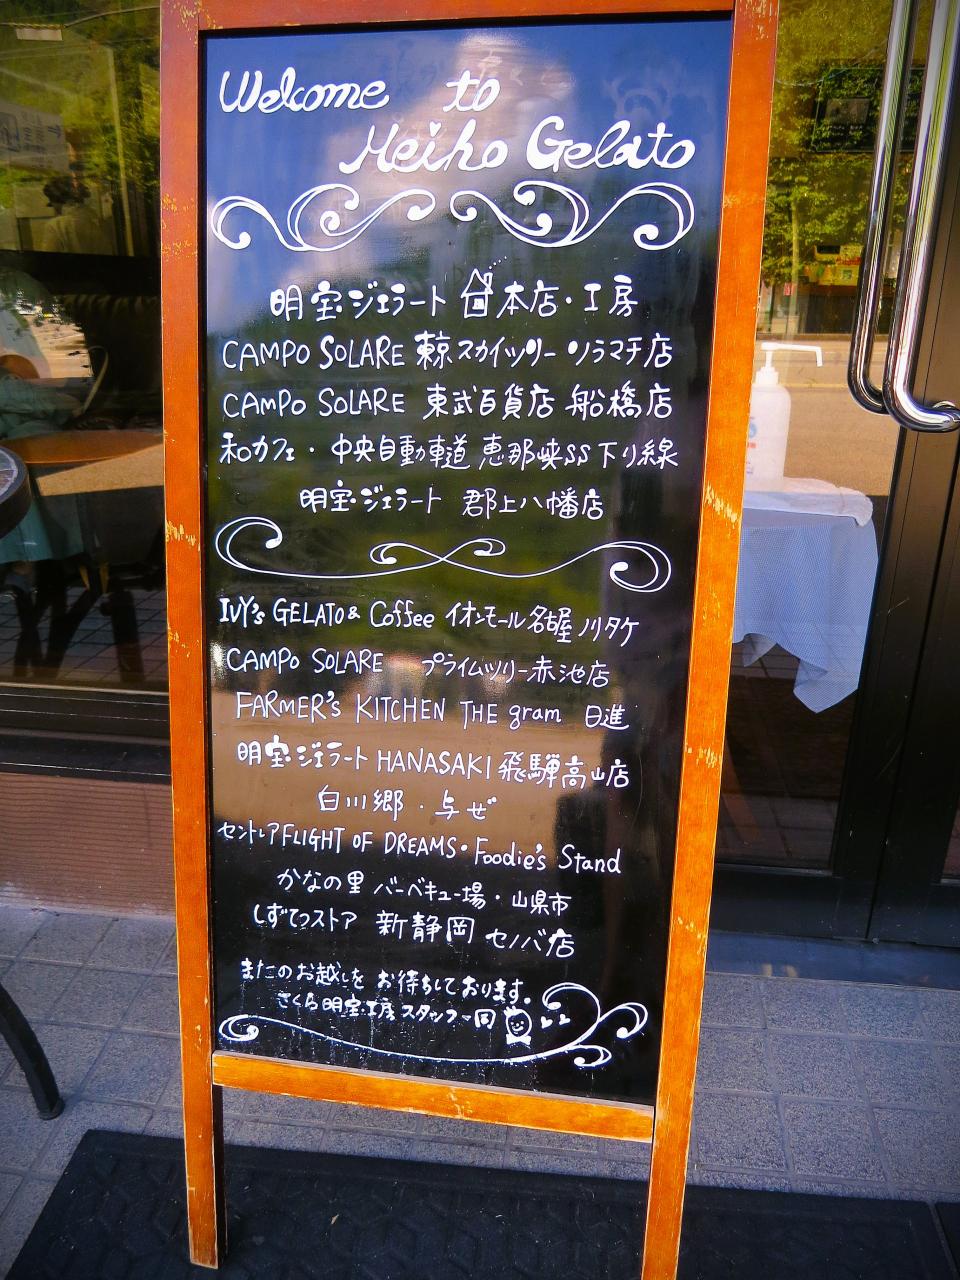 Welcome to
Meiho Gelato
明宝ジェラート 本店・工房
CAMPO SOLARE 東京スカイツリー ソラマチ店
CAMPO SOLARE 東武百貨店 船橋店
和カフェ・中央自動車道 恵那峡SS下り線
明宝ジェラート 郡上八幡店
IVY's GELATO & Coffee イオンモール名古屋ノリタケ
CAMPO SOLARE プライムツリー赤池店
FARMER'S KITCHEN THE gram 日進
明宝ジェラート HANASAKI 飛騨高山店
白川郷・与ぜ
セントレアFLIGHT OF DREAMS・Foodie's Stand
かなの里 バーベキュー場・山県市
しずてつストア 新静岡セノバ店
またのお越しを お待ちしております。
さくら明宝工房スタッフ一同